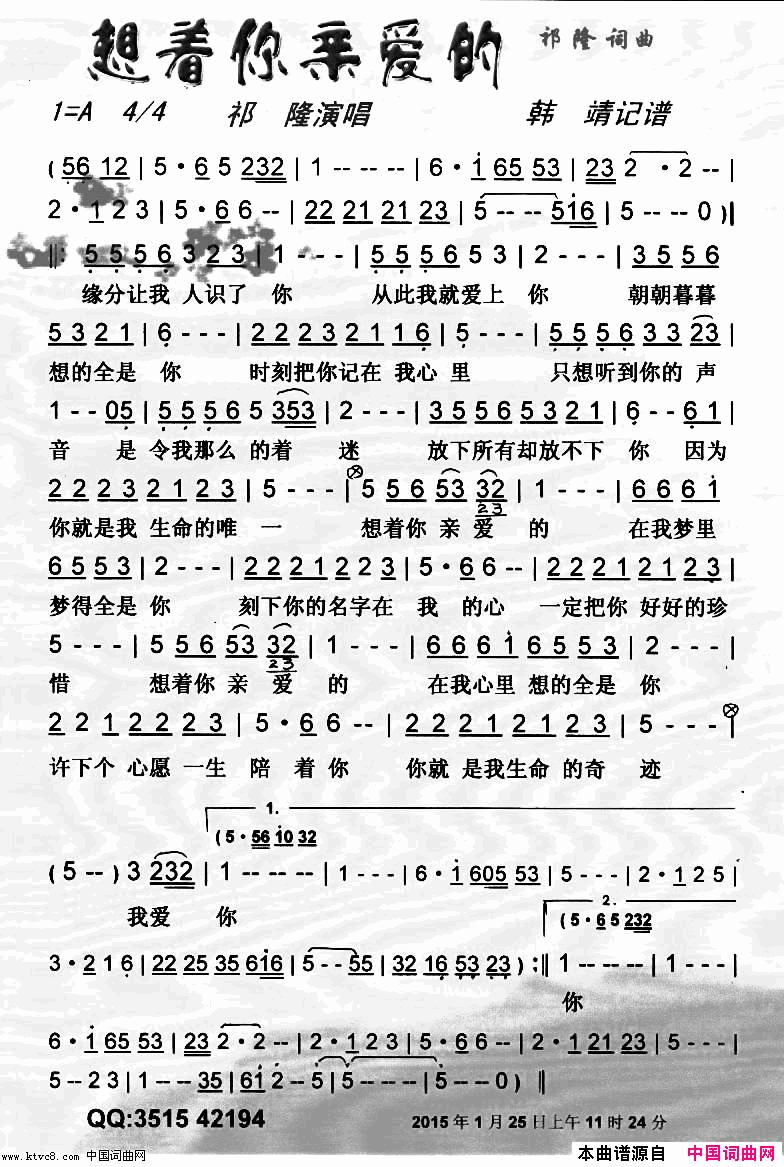 想着你亲爱的 祁隆词曲
1=A 4/4 祁 隆演唱 韩 靖记谱
(56 12 | 5·6 5 232 | 1 -- -- | 6·i 65 53 | 23 2 ·2-- |
2·1 2 3 | 5·6 6 -- | 22 21 21 23 | 5 -- -- 5i6 | 5 -- 0 )‖
‖: 5 5 5 6 3 2 3 | 1 - - - | 5 5 5 6 5 3 | 2 - - - | 3 5 5 6
缘分让我 人识了 你 从此我就爱上 你 朝朝暮暮
5 3 2 1 | 6 - - - | 2 2 2 3 2 2 1 1 6 | 5 - - - | 5 5 5 6 3 3 23 |
想的全是 你 时刻把你记在 我心 里 只想听到你的 声
1 - - 05 | 5 5 5 6 5 353 | 2 - - - | 3 5 5 6 5 3 2 1 | 6 - - 6 1 |
音 是 令我那么 的着 迷 放下所有却放不下 你 因为
2 2 2 3 2 1 2 3 | 5 - - - | 5 5 6 53 32 | 1 - - - | 6 6 6 i
23
你就是我 生命的唯 一 想着你 亲 爱 的 在我梦里
6 5 5 3 | 2 - - - | 2 2 2 1 2 2 1 | 5·6 6 - - | 2 2 2 1 2 1 2 3 |
梦得全是 你 刻下你的名字在 我 的心 一定把你 好好的珍
5 - - - | 5 5 6 53 32 | 1 - - - | 6 6 6 i 6 5 5 3 | 2 - - - |
23
惜 想着你 亲 爱 的 在我心里 想的全是 你
2 2 1 2 2 2 3 | 5·6 6 -- | 2 2 2 1 2 1 2 3 | 5 - - - |
许下个 心愿 一生 陪 着你 你就 是我生命 的奇 迹
1.
(5·56 i0 32
(5 --) 3 232 | 1 -- -- | 1 - - - | 6·i 605 53 | 5 - - - | 2·1 2 5 |
我爱 你
2.
(5·6 5 232
3·2 1 6 | 22 25 35 6i6 | 5 -- 55 | 32 16 53 23 ) :‖ 1 -- -- | 1 - - - |
你
6·i 65 53 | 23 2·2 -- | 2·1 2 3 | 5·6 6 -- | 2·1 21 23 | 5 - - - |
5 -- 2 3 | 1 -- -- 35 | 6i 2 -- 5 | 5 -- -- 5 | 5 -- 0 ) ‖
QQ:3515 42194 2015年1月25日上午11时24分
www.ktvc8.com 中国词曲网 本曲谱源自 中国词曲网